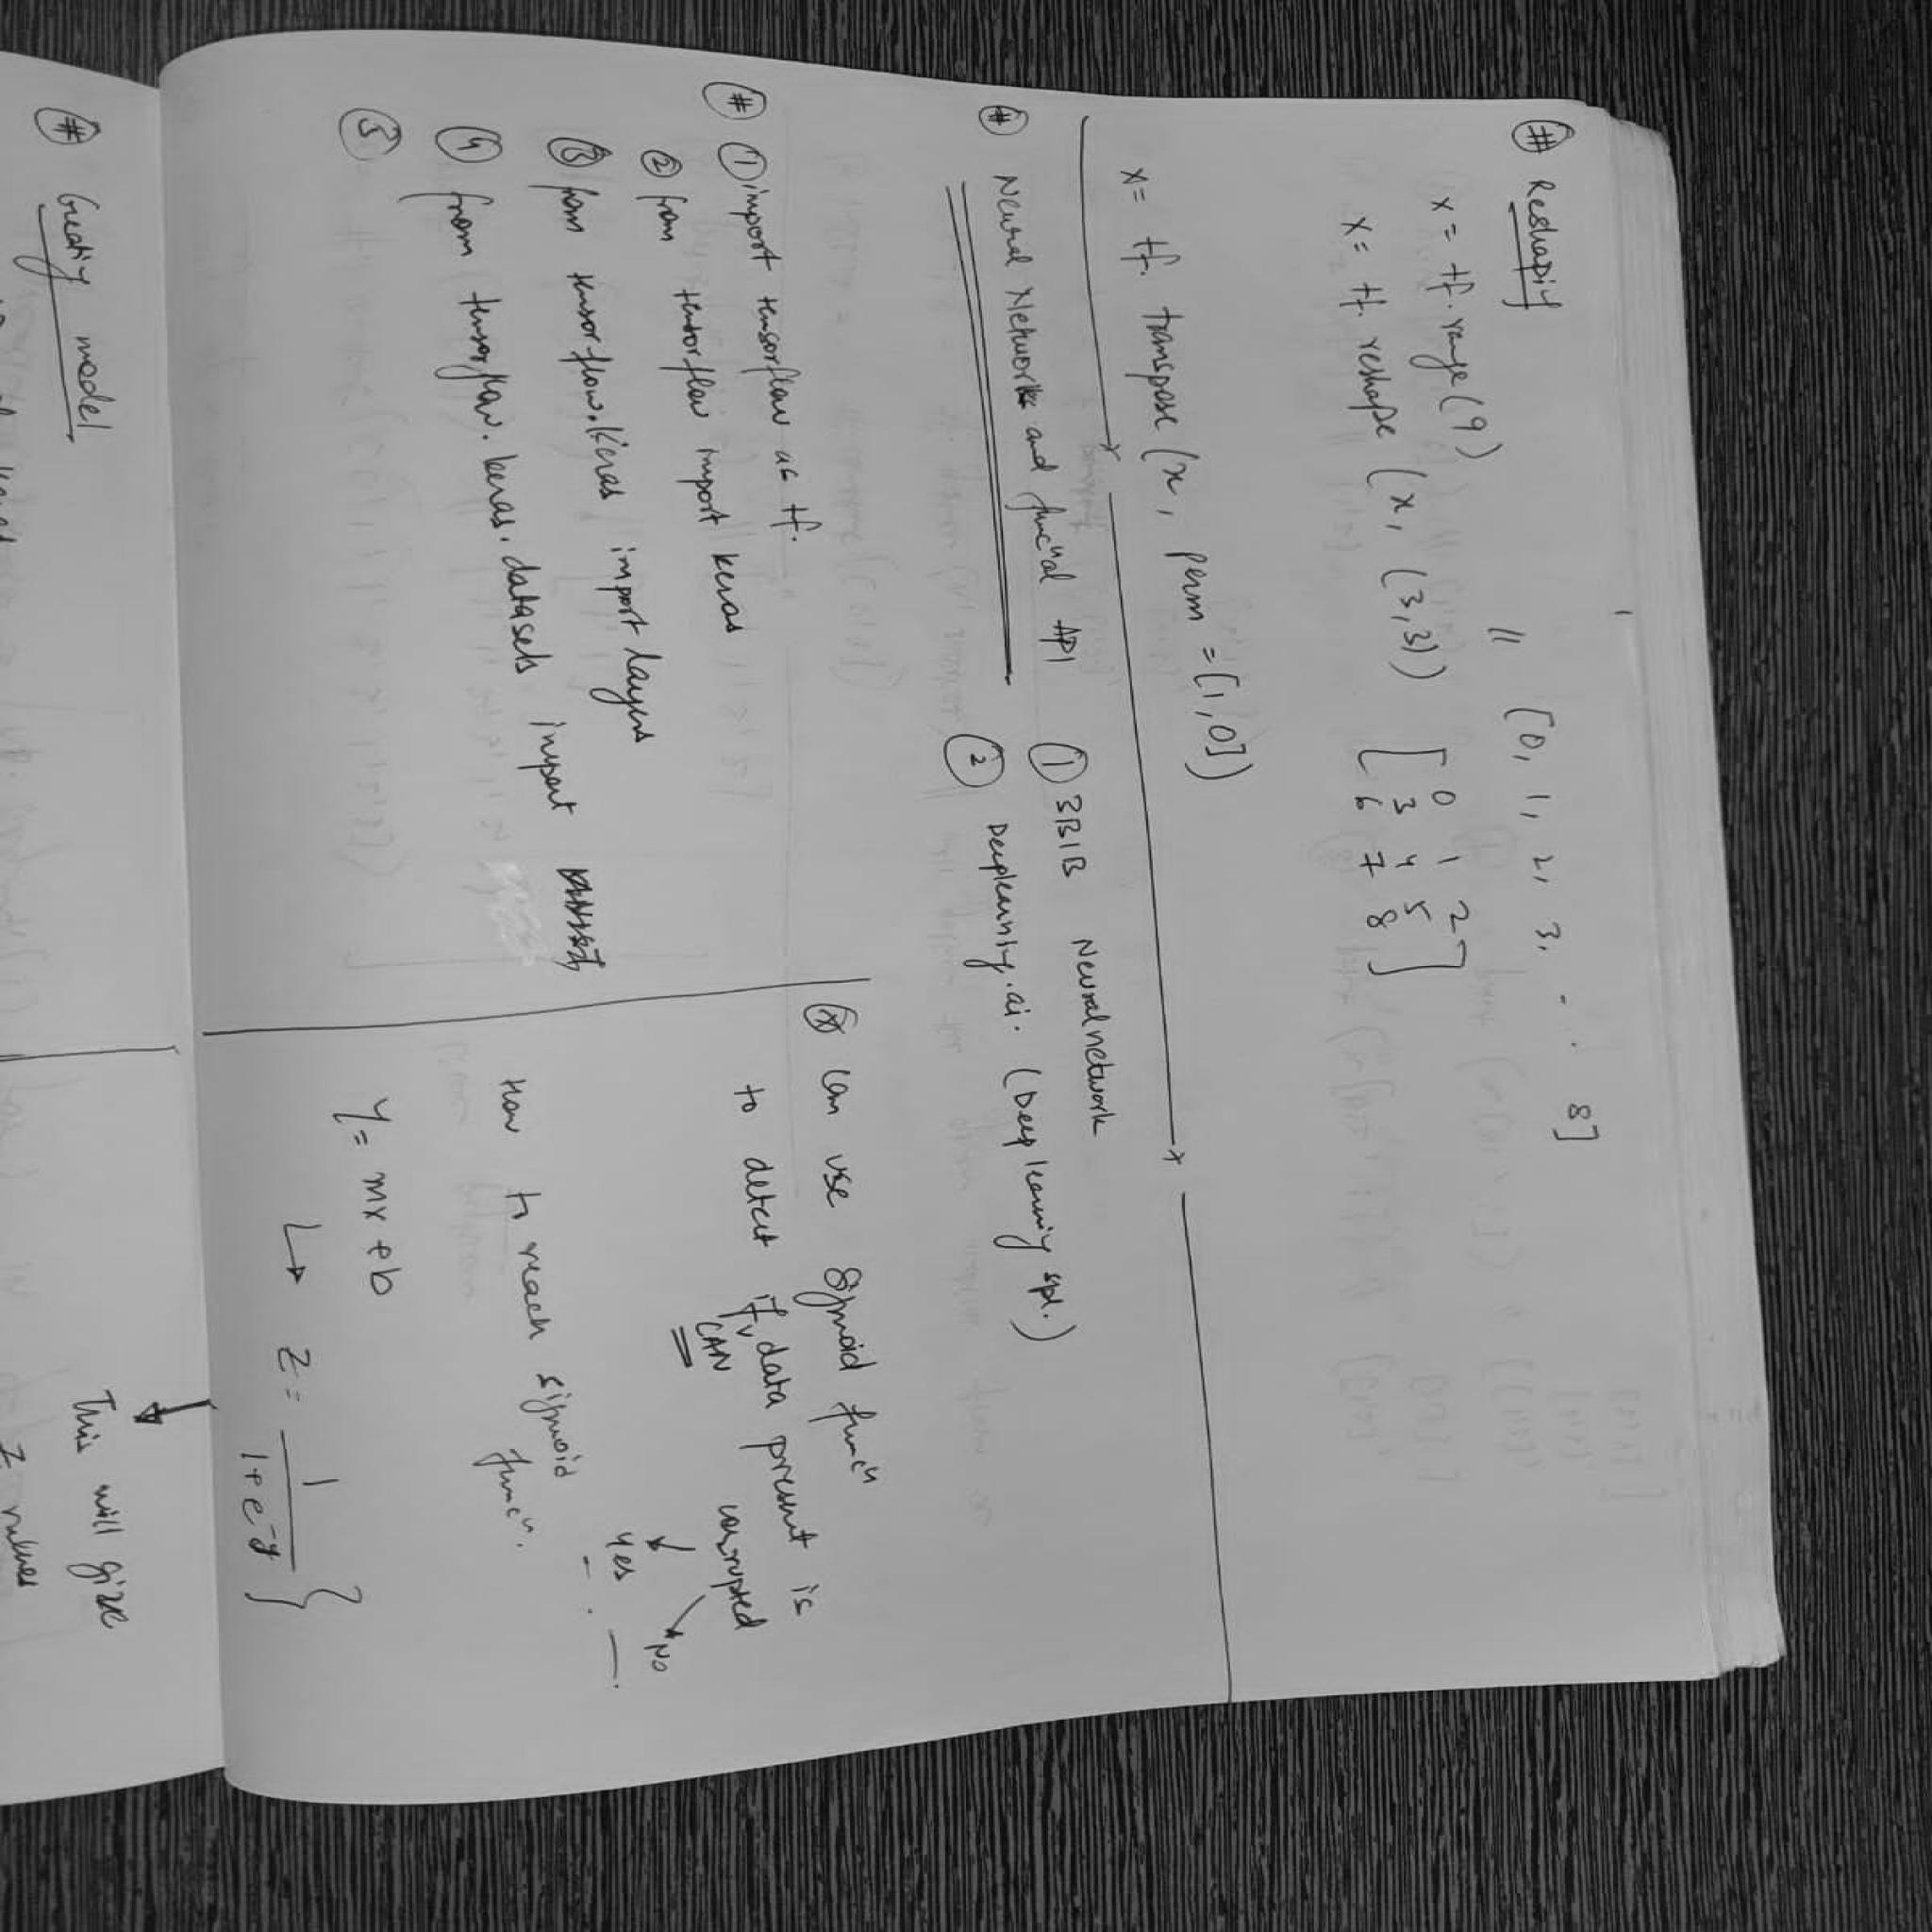 # Reshapif
x = tf. range (9) // [0, 1, 2, 3, - .. 8]
x = tf. reshape (x, (3,3)) [ 0 1 2
3 4 5
6 7 8 ]
x = tf. transpose (x, perm = [1,0])
# Neural Networks and funcⁿal API ① 3B1B Neural network
② Deeplearning.ai. (Deep learning spl.)
# ① import tensorflow as tf.
② from tensorflow import keras
③ from tensorflow.keras import layers
④ from tensorflow. keras. datasets import
⑤
* Can use sigmoid funcⁿ
to detect if CAN data present is
corrupted
Yes No
How to reach sigmoid
funcⁿ.
y = mx + b
↳ z = 1 / 1+e^-y }
# Creating model
This will give
z values